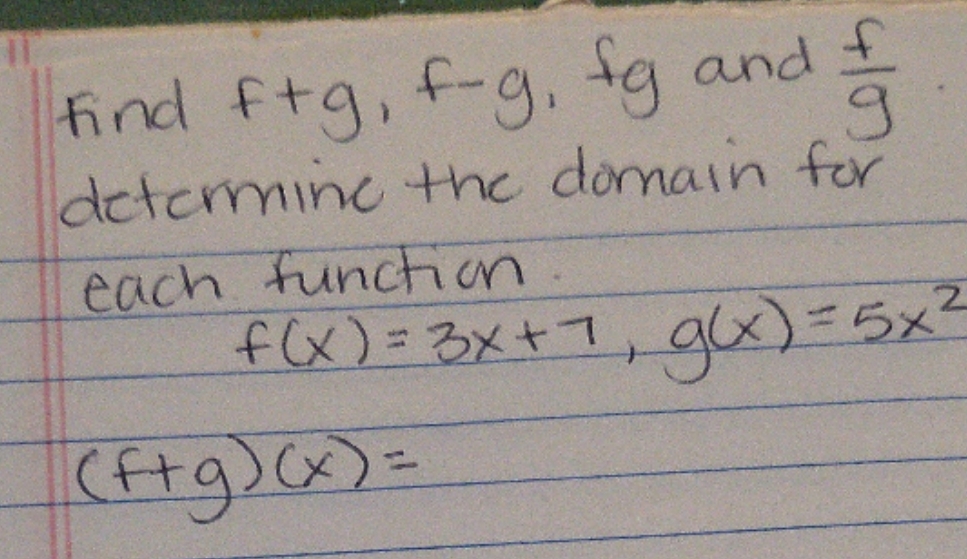 Find f+g, f-g, fg and f/g.
determine the domain for
each function.
f(x)=3x+7, g(x)=5x²
(f+g)(x)=